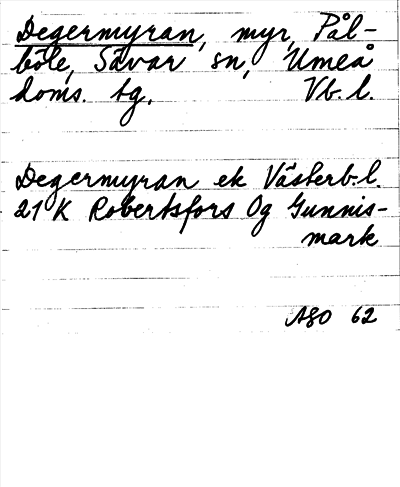 Degermyran, myr, Pål-
böle, Sävar sn, Umeå
doms. tg. Vb. l.
Degermyran ek Västerb. l.
21 K Robertsfors Og Gunnis-
mark
ASO 62